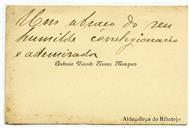 Um abraço do seu
humilde correligionario
e admirador
Antonio Vicente Nunes Marques
Aldegallega do Ribatejo